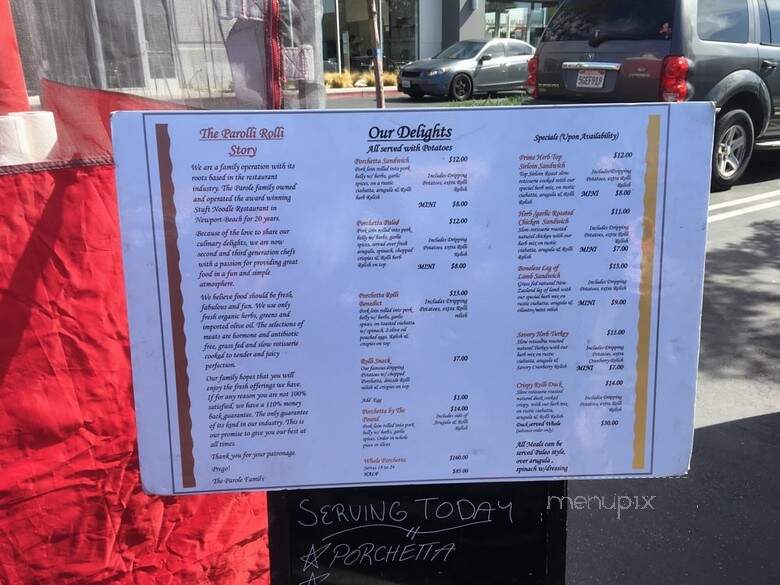 5GEF919
The Parolli Rolli
Story
We are a family operation with its
roots based in the restaurant
industry. The Parole family owned
and operated the award winning
Stuft Noodle Restaurant in
Newport Beach for 20 years.
Because of the love to share our
culinary delights, we are now
second and third generation chefs
with a passion for providing great
food in a fun and simple
atmosphere.
We believe food should be fresh,
fabulous and fun. We use only
fresh organic herbs, greens and
imported olive oil. The selections of
meats are hormone and antibiotic
free, grass fed and slow rotisserie
cooked to tender and juicy
perfection.
Our family hopes that you will
enjoy the fresh offerings we have.
If for any reason you are not 100%
satisfied, we have a 110% money
back guarantee. The only guarantee
of its kind in our industry. This is
our promise to give you our best at
all times.
Thank you for your patronage.
Prego!
The Parole Family
Our Delights
All served with Potatoes
Porchetta Sandwich $12.00
Pork loin rolled into pork
belly w/ herbs, garlic
spices, on a rustic
ciabatta, arugula & Rolli
herb Relish
Includes Dripping
Potatoes, extra Rolli
Relish
MINI $8.00
Porchetta Paleo $12.00
Pork loin rolled into pork
belly w/ herbs, garlic
spices, served over fresh
arugula, spinach, chopped
crispies & Rolli herb
Relish on top
Includes Dripping
Potatoes, extra Rolli
Relish
MINI $8.00
Porchetta Rolli $13.00
Benedict
Pork loin rolled into pork
belly w/ herbs, garlic
spices, on toasted ciabatta
w/ spinach, 2 olive oil
poached eggs, Relish &
crispies on top
Includes Dripping
Potatoes, extra Rolli
relish
Rolli Snack $7.00
Our famous dripping
Potatoes w/ chopped
Porchetta, drizzle Rolli
relish & crispies on top
Add Egg $1.00
Porchetta by The $14.00
Pound
Pork loin rolled into pork
belly w/ herbs, garlic
spices. Order in whole
piece or slices
Includes side of
Arugula & Rolli
Relish
Whole Porchetta $160.00
Serves 18 to 24
HALF $85.00
Specials (Upon Availability)
Prime Herb Top $12.00
Sirloin Sandwich
Top Sirloin Roast slow
rotisserie cooked with our
special herb mix, on rustic
ciabatta, arugula & Rolli
Relish
Includes Dripping
Potatoes, extra Rolli
Relish
MINI $8.00
Herb /garlic Roasted $11.00
Chicken Sandwich
Slow rotisserie roasted
natural chicken with our
herb mix on rustic
ciabatta, arugula & Rolli
Relish
Includes Dripping
Potatoes, extra Rolli
Relish
MINI $7.00
Boneless Leg of $13.00
Lamb Sandwich
Grass fed natural New
Zealand leg of lamb with
our special herb mix on
rustic ciabatta, arugula &
cilantro/mint relish
Includes Dripping
Potatoes, extra Rolli
Relish
MINI $9.00
Savory Herb Turkey $11.00
Slow rotisserie roasted
natural Turkey with our
herb mix on rustic
ciabatta, arugula &
Savory Cranberry Relish
Includes Dripping
Potatoes, extra
Cranberry Relish
MINI $7.00
Crispy Rolli Duck $14.00
Slow rotisserie roasted
natural duck cooked
crispy, with our herb mix
on rustic ciabatta,
arugula & Rolli Relish
Includes Dripping
Potatoes, extra Rolli
Relish
Duck served Whole $30.00
(advance order only)
All Meals can be
served Paleo style,
over arugula ,
spinach w/dressing
SERVING TODAY
PORCHETTA
menupix